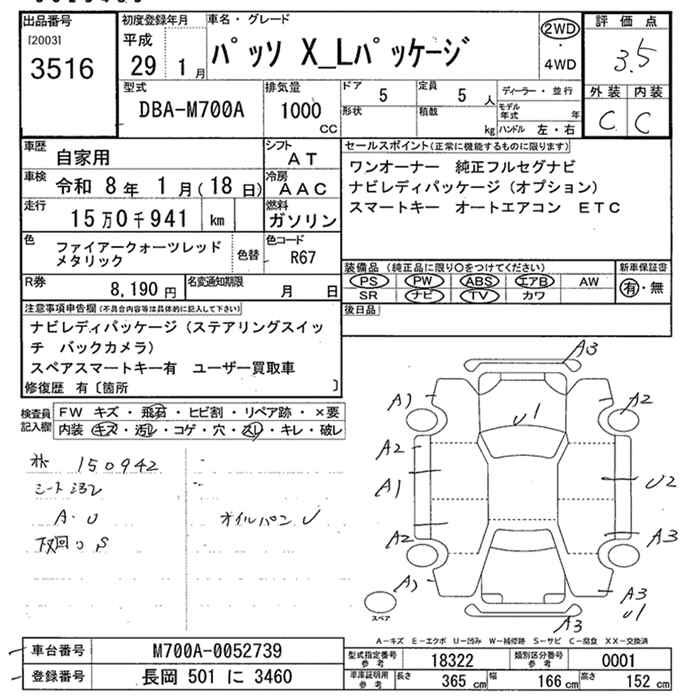 出品番号
[2003]
3516
初度登録年月
平成
29 1月
車名・グレード
パッソ X_Lパッケージ
2WD
・
4WD
評価点
3.5
外装 内装
C C
型式
DBA-M700A
排気量
1000
CC
ドア 5
形状
定員 5 人
積載 kg
ディーラー・並行
モデル年式 年
ハンドル 左・右
車歴 自家用
シフト AT
車検 令和 8年 1月(18日)
冷房 AAC
走行 15万0千941 km
燃料 ガソリン
色 ファイアークォーツレッド
メタリック
色替
色コード R67
R券 8,190円
名変通知期限 月 日
セールスポイント(正常に機能するものに限ります)
ワンオーナー 純正フルセグナビ
ナビレディパッケージ(オプション)
スマートキー オートエアコン ETC
装備品(純正品に限り○をつけてください)
PS PW ABS エアB AW
SR ナビ TV カワ
新車保証書
有・無
後日品
注意事項申告欄(不具合内容等は具体的に記入して下さい)
ナビレディパッケージ(ステアリングスイッ
チ バックカメラ)
スペアスマートキー有 ユーザー買取車
修復歴 有〔箇所 〕
検査員
記入欄
FW キズ・飛石・ヒビ割・リペア跡・×要
内装 キズ・汚レ・コゲ・穴・スレ・キレ・破レ
150942
A・U
オイルパン U
A3
A1
A2
U1
A2
A1
U2
A2
A3
A1
A3
U1
A3
スペア
A-キズ E-エクボ U-凹み W-補修跡 S-サビ C-腐食 XX-交換済
車台番号 M700A-0052739
登録番号 長岡 501 に 3460
型式指定番号
参考
18322
類別区分番号
参考
0001
車庫証明用
参考
長さ 365 cm 幅 166 cm 高さ 152 cm